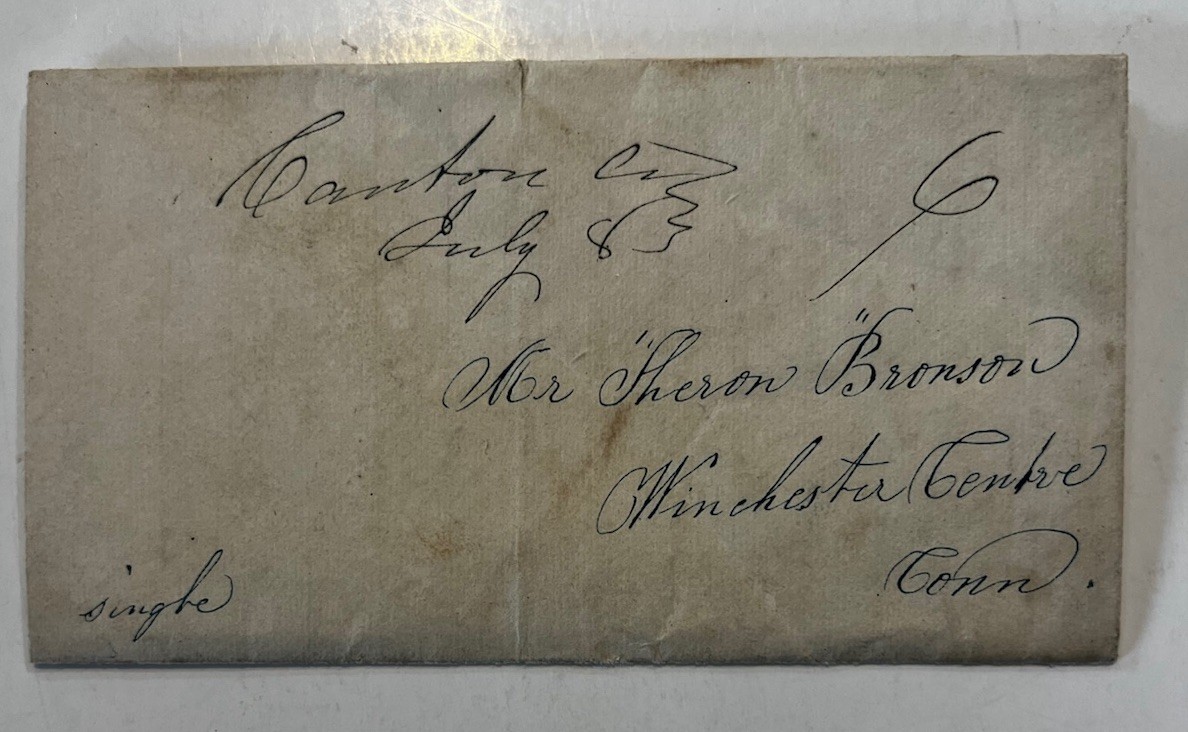 Canton Ct 6
July 8
Mr Theron Bronson
Winchester Centre
Conn.
single